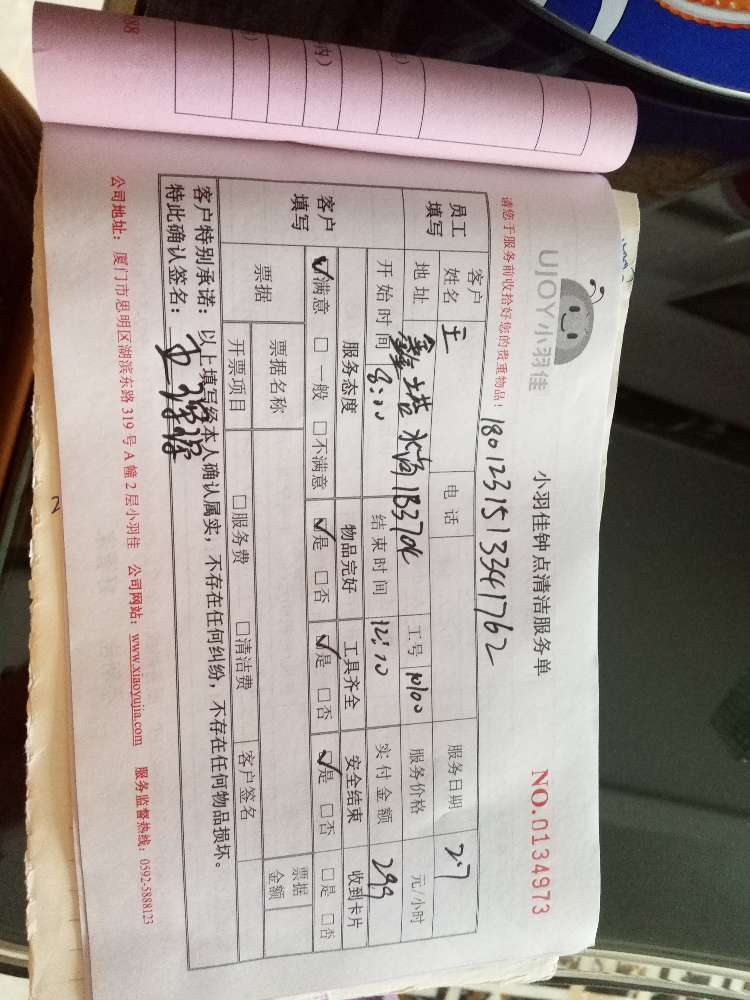 UJOY小羽佳
小羽佳钟点清洁服务单
NO.0134973
请您于服务前收拾好您的贵重物品！
1801231513341762
员工填写 客户姓名 王 电话 服务日期 2.7
地址 鑫塔水尚1B3704 工号 服务价格 元/小时
开始时间 8:00 结束时间 12:10 实付金额 299
客户填写 服务态度 物品完好 工具齐全 安全结束 收到卡片
☑满意 □一般 □不满意 ☑是 □否 ☑是 □否 ☑是 □否 □是 □否
票据 票据名称 票据金额
开票项目 □服务费 □清洁费 客户签名
客户特别承诺：以上填写经本人确认属实，不存在任何纠纷，不存在任何物品损坏。
特此确认签名：
公司地址：厦门市思明区湖滨东路319号A幢2层小羽佳 公司网站：www.xiaoyujia.com 服务监督热线：0592-5888123